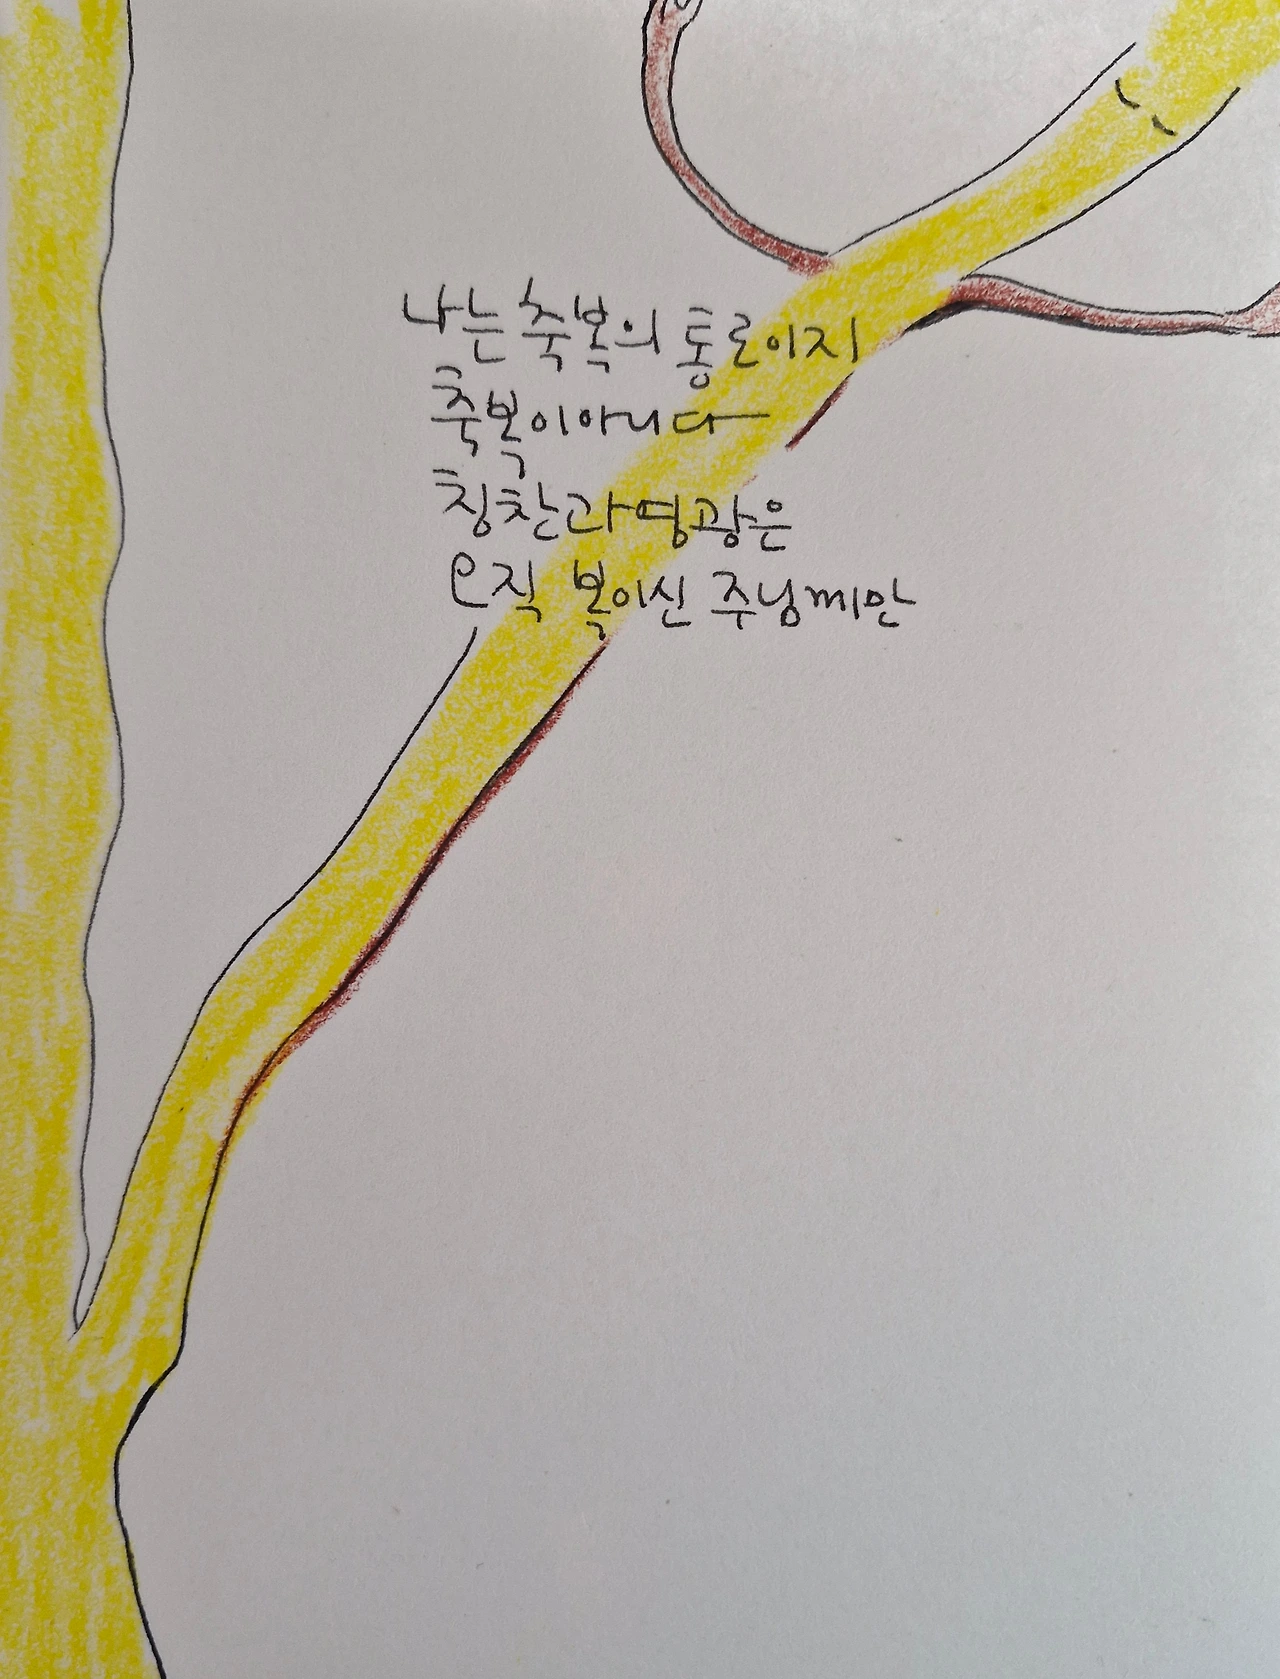 나는 축복의 통로이지
축복이아니다
칭찬과 영광은
오직 복이신 주님께만